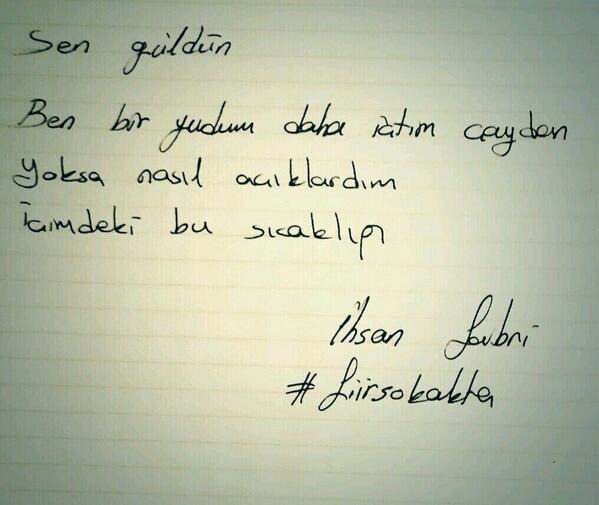 Sen güldün
Ben bir yudum daha içtim çaydan
Yoksa nasıl açıklardım
İçimdeki bu sıcaklığı
İhsan
#şiirsokakta